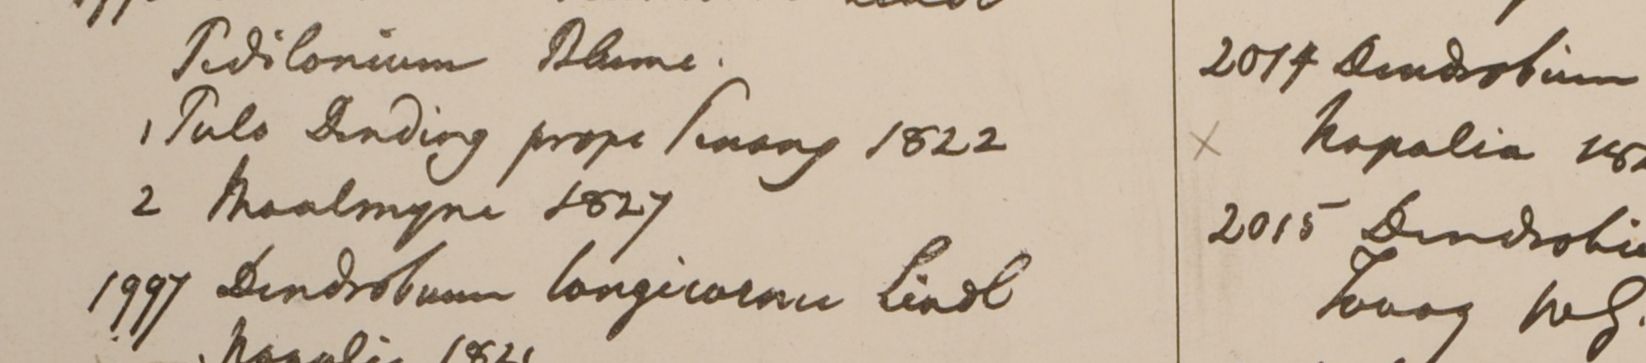 Pedilonium Blume.
1 Pulo Dinding prope Penang 1822
2 Moalmyne 1827
1997 Dendrobium longicornu Lindl
Napalia 1821
2014 Dendrobium
x Napalia 182
2015 Dendrobiu
Tavoy W.G.